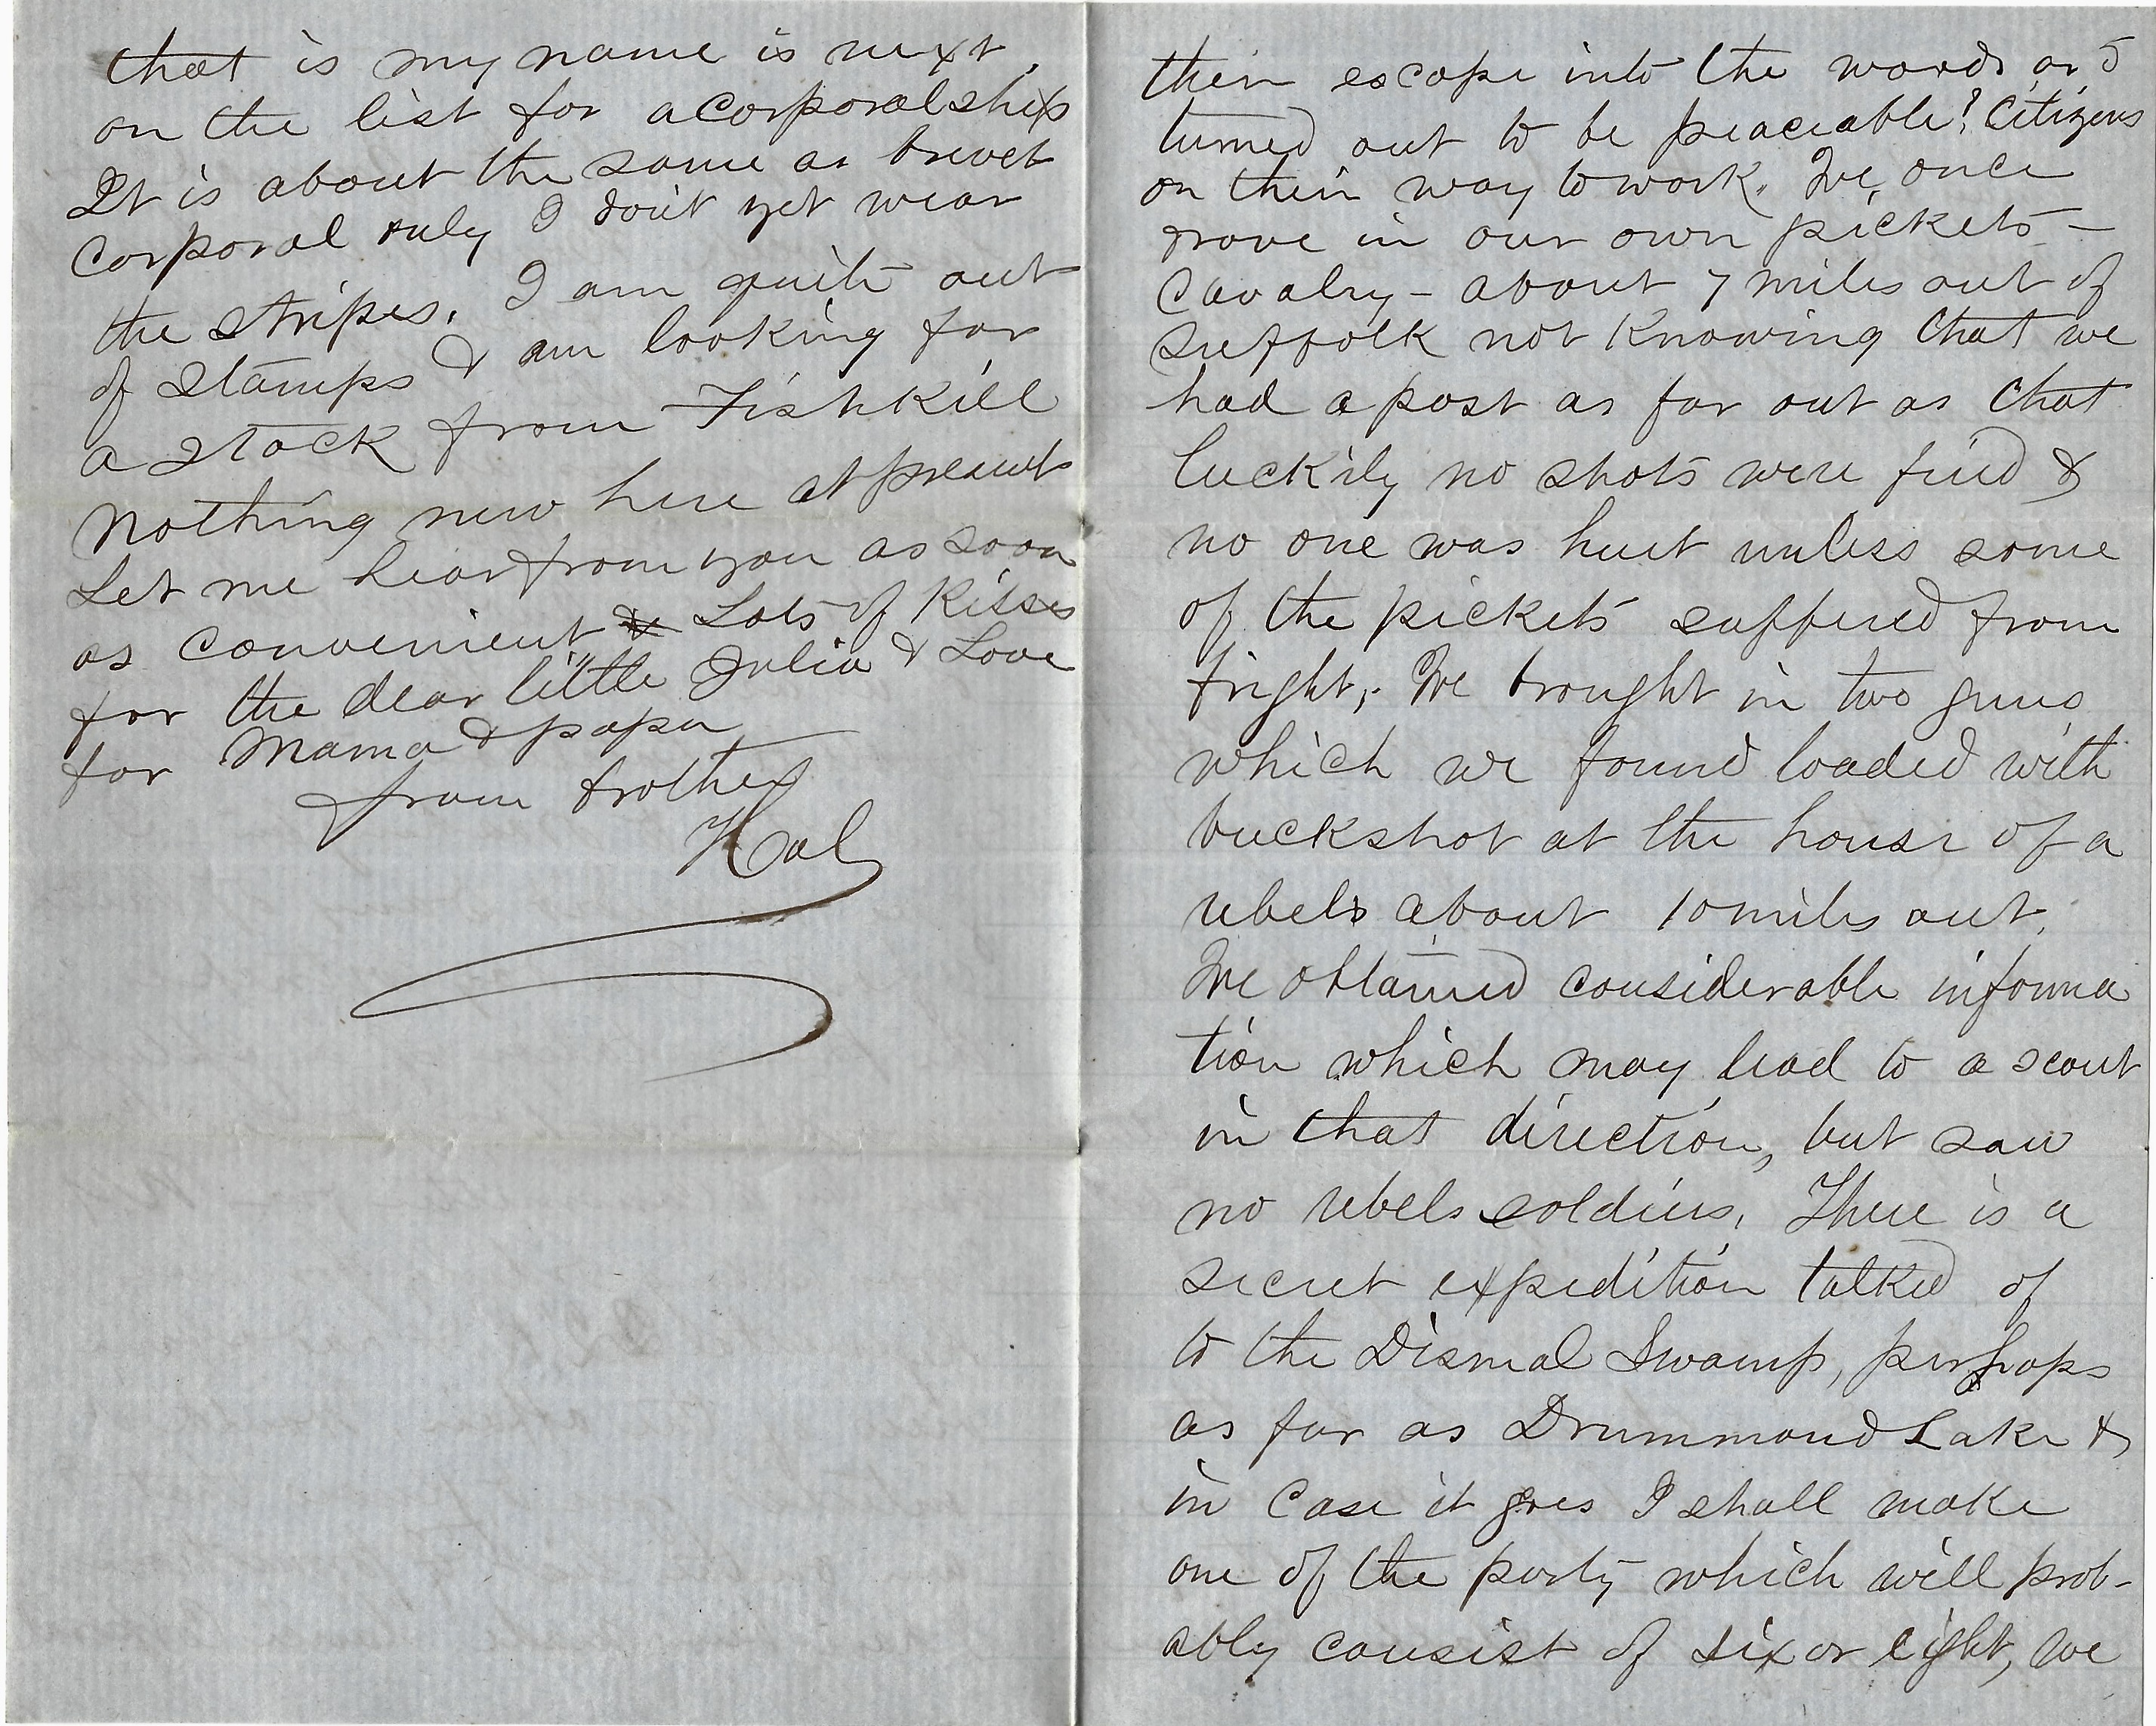 that is my name is next
on the list for a corporalship
It is about the same as brevet
Corporal only I don't yet wear
the stripes. I am quite out
of stamps & am looking for
a stock from Fishkill
Nothing new here at present
Let me hear from you as soon
as convenient & Lots of Kisses
for the dear little Julia & Love
for Mama & papa
from brother
Hal
their escape into the woods and
turned out to be peaceable! Citizens
on their way to work. We once
drove in our own pickets -
Cavalry - about 7 miles out of
Suffolk not knowing that we
had a post as far out as that
luckily no shots were fired &
no one was hurt unless some
of the pickets suffered from
fright, We brought in two guns
which we found loaded with
buckshot at the house of a
rebels about 10 miles out.
We obtained considerable informa
tion which may lead to a scout
in that direction, but saw
no rebels soldiers. There is a
secret expedition talked of
to the Dismal Swamp, perhaps
as far as Drummond Lake &
in case it goes I shall make
one of the party which will prob-
ably consist of six or eight, we